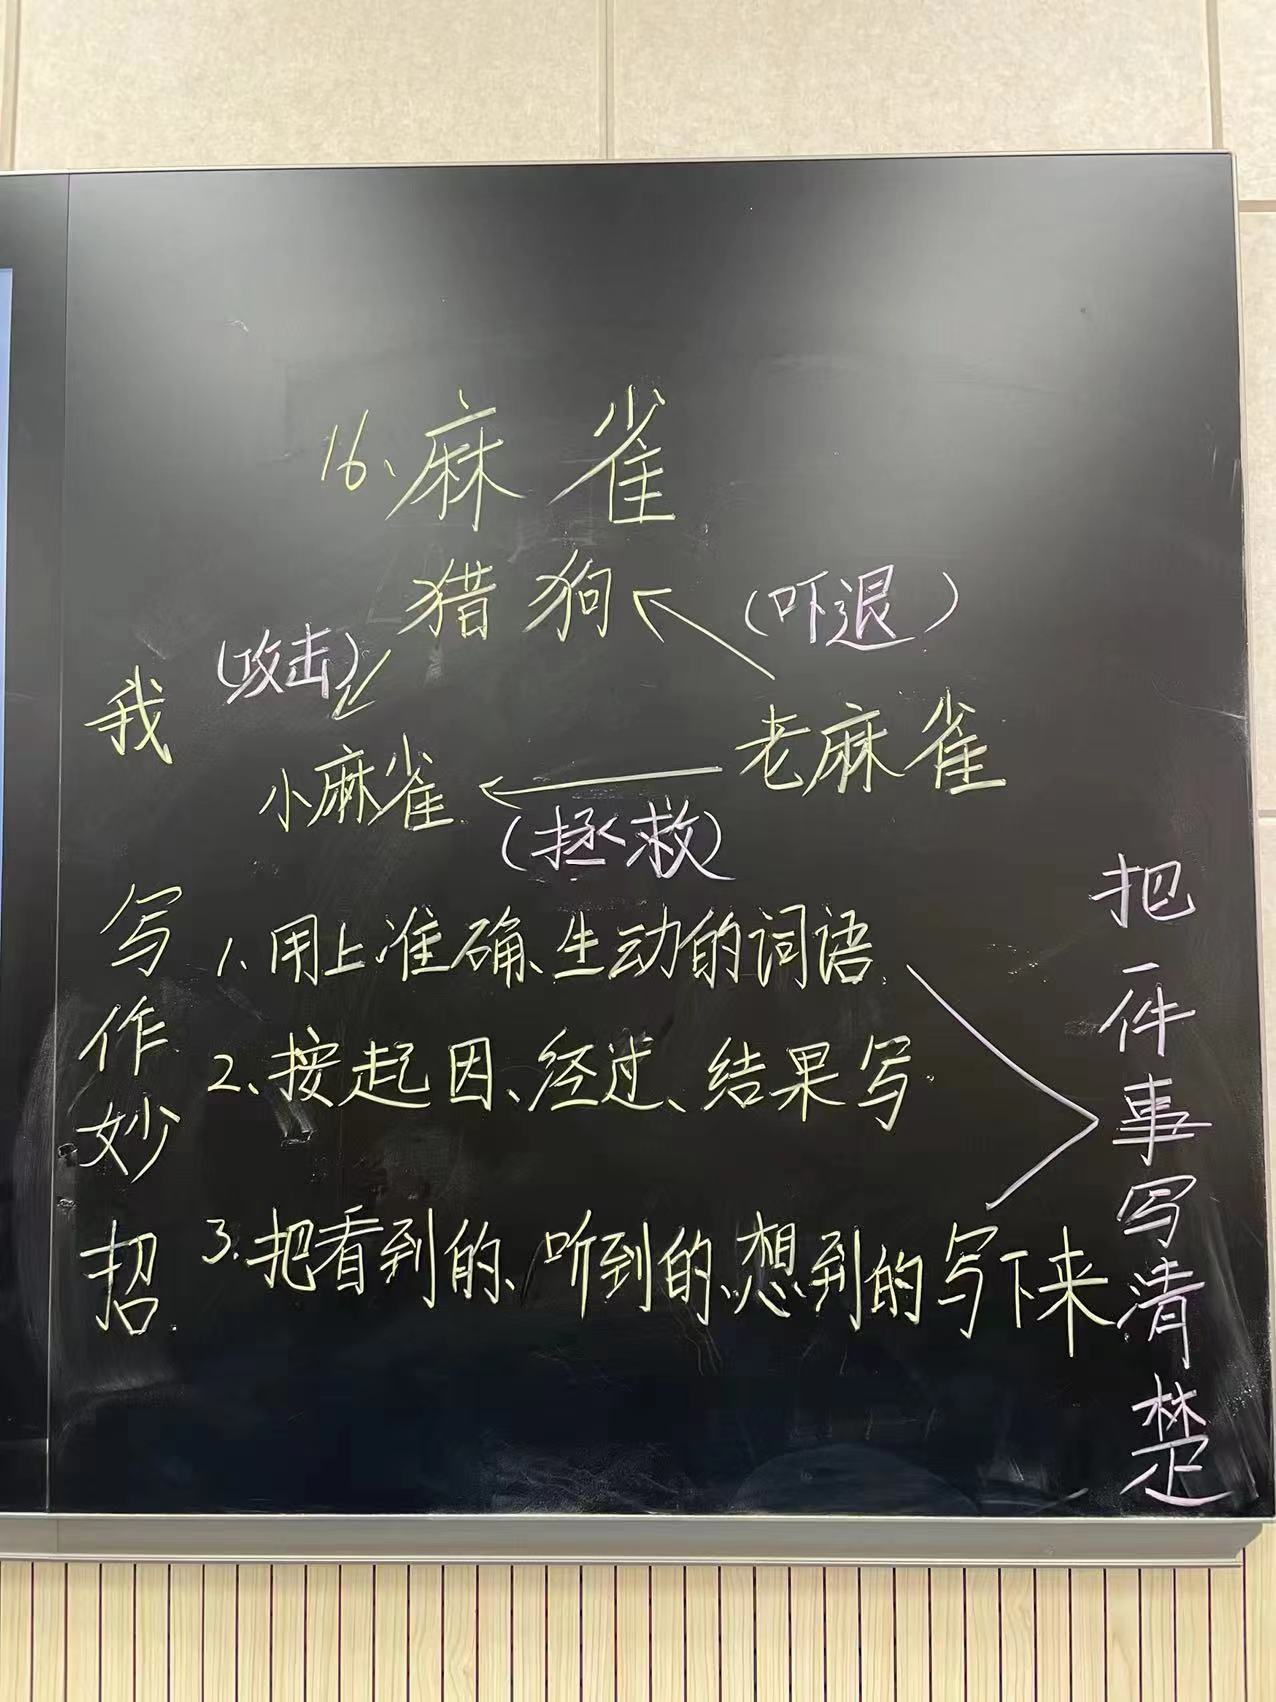 16、麻雀
猎狗
(吓退)
(攻击)
我
老麻雀
小麻雀
(拯救)
写作妙招
1、用上准确、生动的词语
2、按起因、经过、结果写
3、把看到的、听到的、想到的写下来
把一件事写清楚